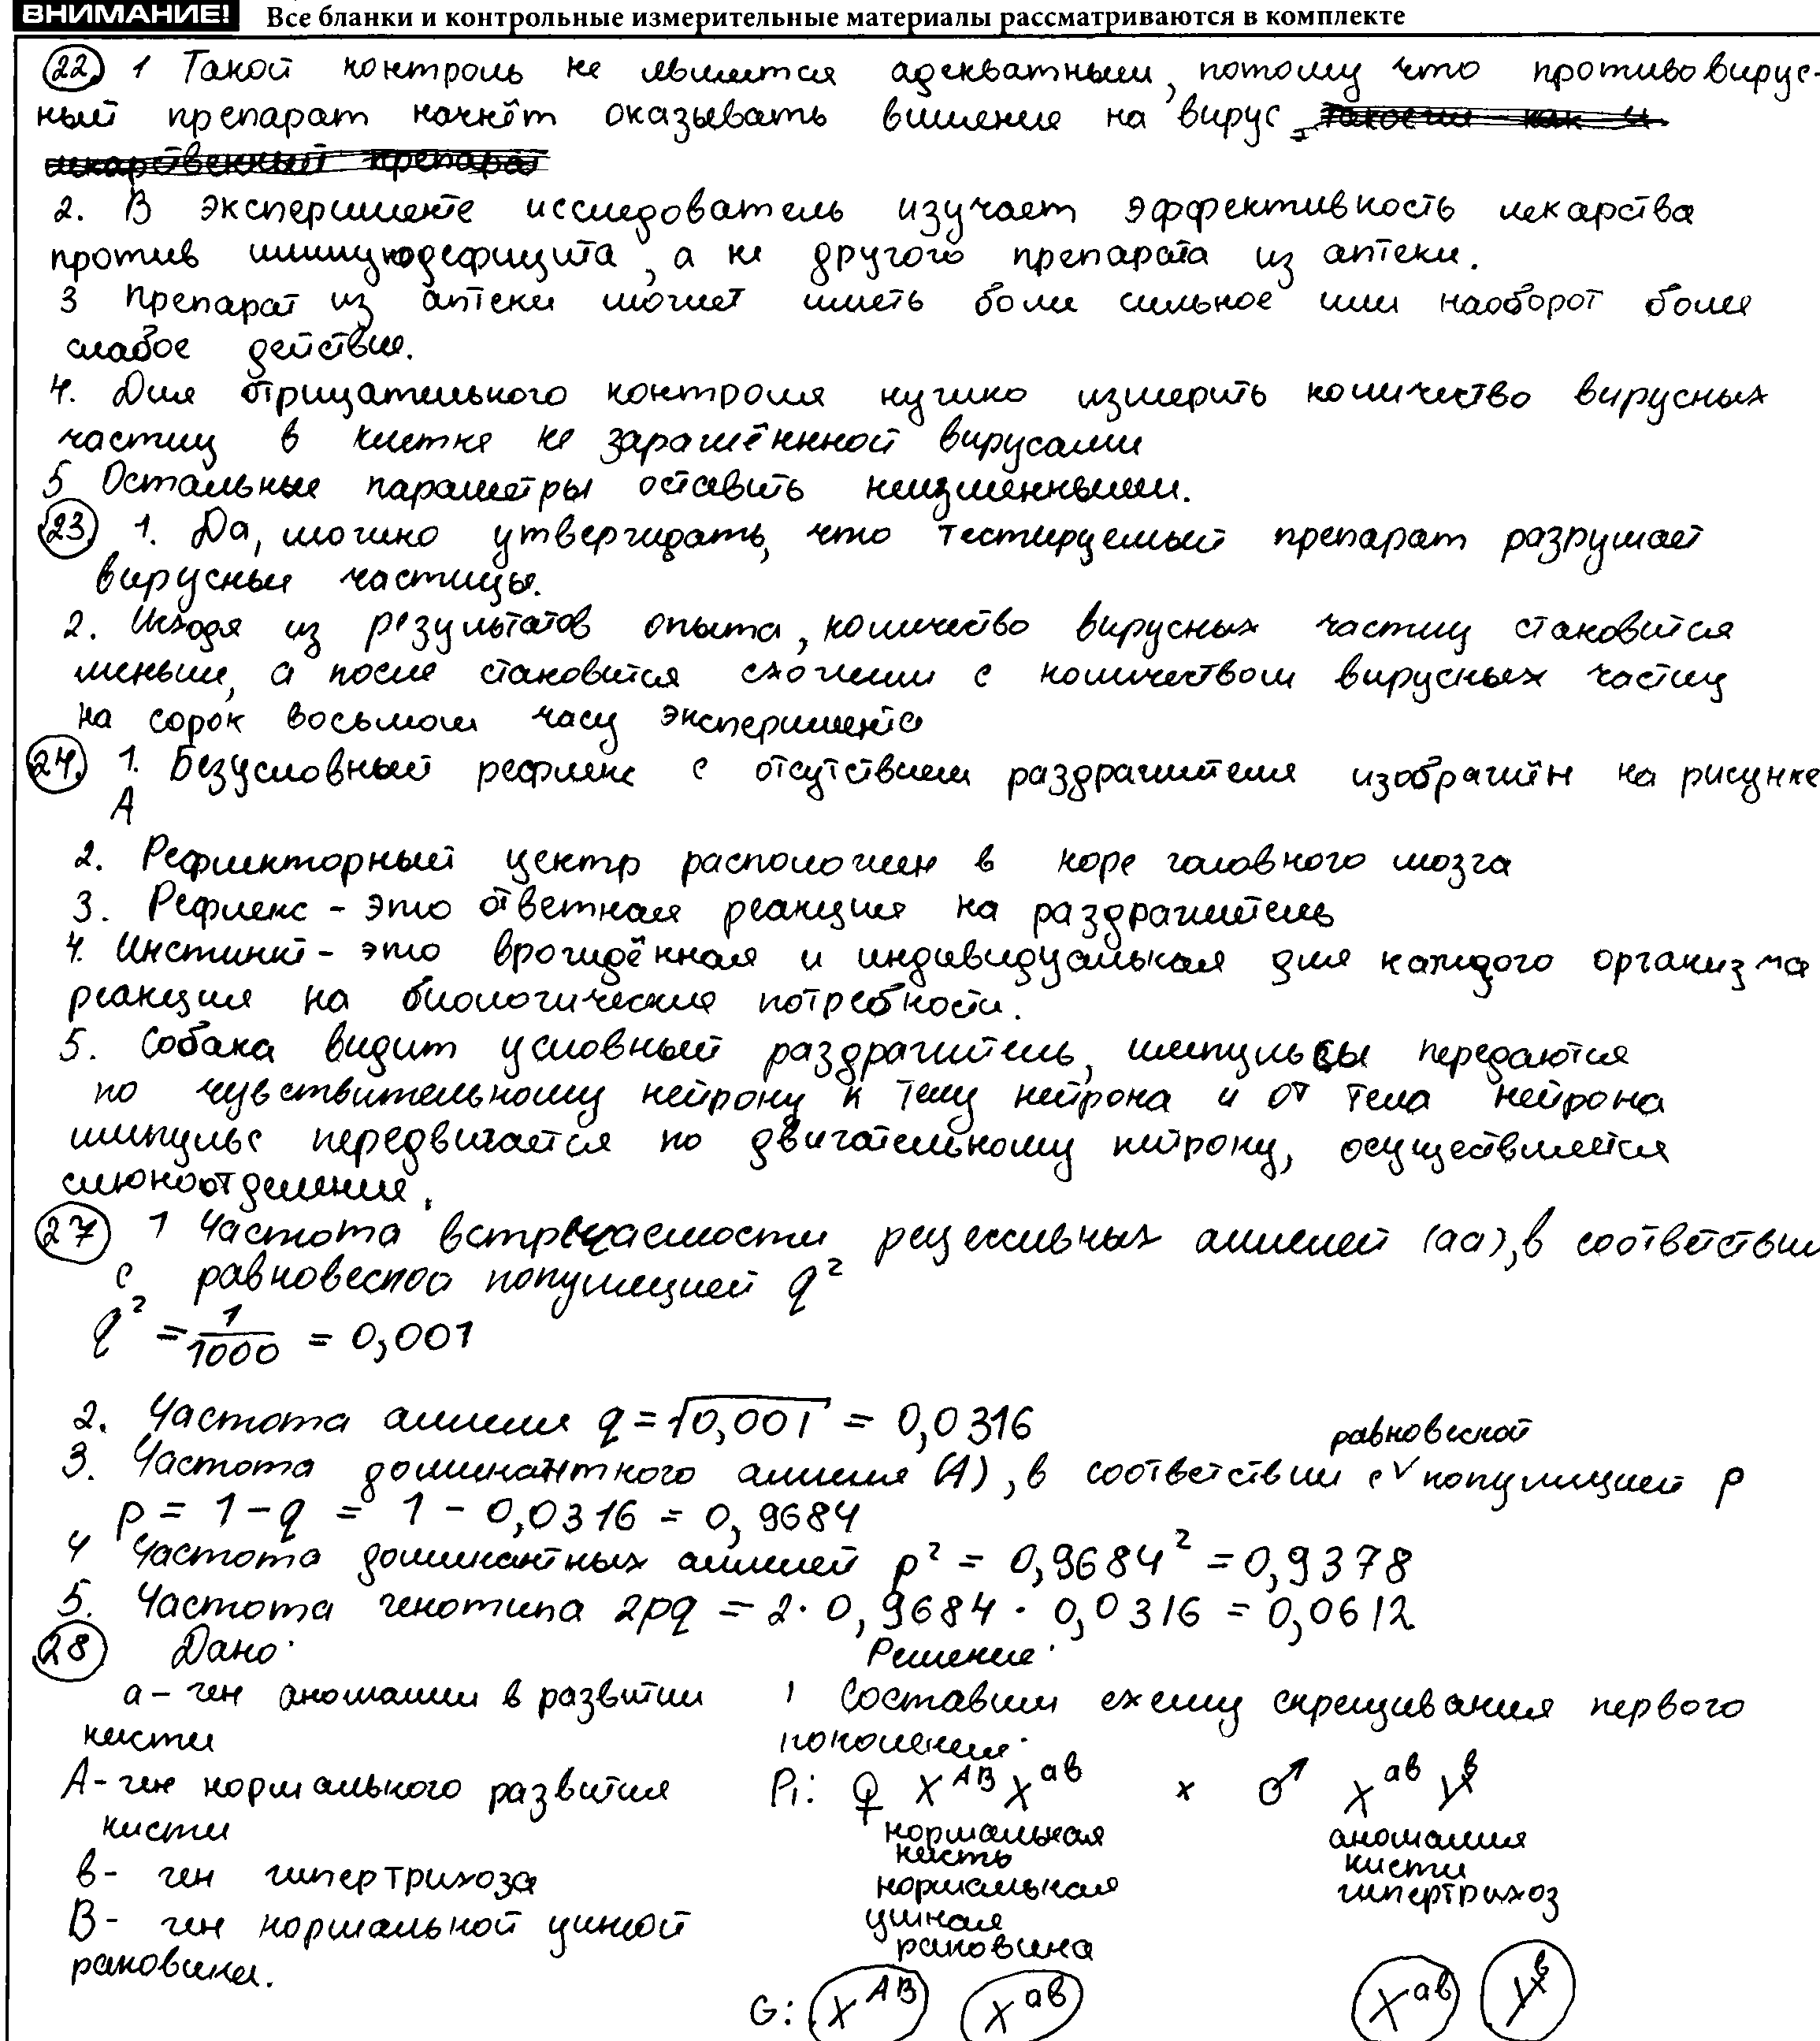 ВНИМАНИЕ! Все бланки и контрольные измерительные материалы рассматриваются в комплекте
22) 1 Такой контроль не является адекватным, потому что противовирус-
ный препарат начнёт оказывать влияние на вирус
2. В эксперименте исследователь изучает эффективность лекарства
против иммунодефицита, а не другого препарата из аптеки.
3 Препарат из аптеки может иметь более сильное или наоборот более
слабое действие.
4. Для отрицательного контроля нужно измерить количество вирусных
частиц в клетке не заражённной вирусами
5 Остальные параметры оставить неизменными.
23) 1. Да, можно утверждать, что тестируемый препарат разрушает
вирусные частицы.
2. Исходя из результатов опыта, количество вирусных частиц становится
меньше, а после становится схожим с количеством вирусных частиц
на сорок восьмом часу эксперимента
24. 1. Безусловный рефлекс с отсутствием раздражителя изображён на рисунке
А
2. Рефлекторный центр расположен в коре головного мозга
3. Рефлекс - это ответная реакция на раздражитель
4. Инстинкт - это врождённая и индивидуальная для каждого организма
реакция на биологические потребности.
5. Собака видит условный раздражитель, импульсы передаются
по чувствительному нейрону к телу нейрона и от тела нейрона
импульс передвигается по двигательному нейрону, осуществляется
слюноотделение.
27) 1 Частота встречаемости рецессивных аллелей (аа), в соответствии
с равновесной популяцией q²
q² = 1/1000 = 0,001
2. Частота аллеля q = √0,001 = 0,0316
равновесной
3. Частота доминантного аллеля (А), в соответствии с ∨ популяцией p
p = 1 - q = 1 - 0,0316 = 0,9684
4 Частота доминантных аллелей p² = 0,9684² = 0,9378
5. Частота генотипа 2pq = 2 · 0,9684 · 0,0316 = 0,0612
28) Дано: Решение:
а - ген аномалии в развитии 1 Составим схему скрещивания первого
кисти поколения:
А - ген нормального развития P₁: ♀ X^АВ X^ав × ♂ X^ав Y^в
кисти нормальная аномалия
кисть кисти
в - ген гипертрихоза нормальная гипертрихоз
В - ген нормальной ушной ушная
раковины. раковина
G: X^АВ X^ав X^ав Y^в